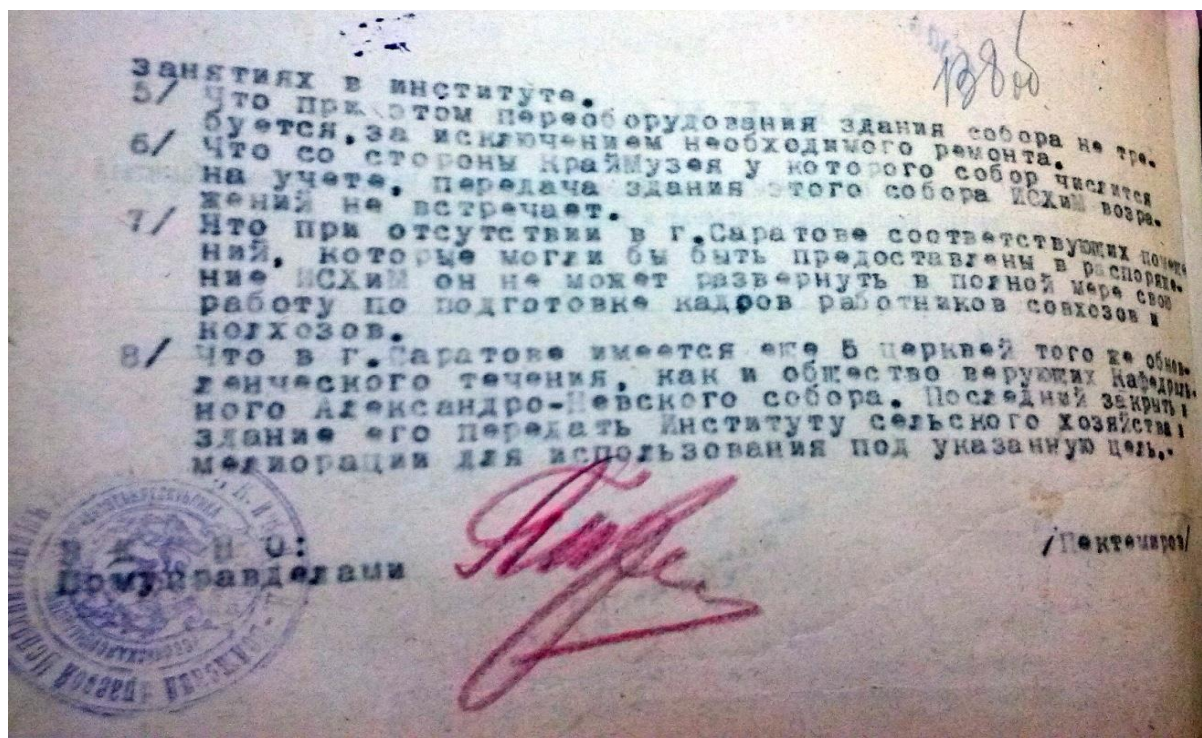 138 об
занятиях в институте.
5/ Что при этом переоборудования здания собора не тре-
буется, за исключением необходимого ремонта.
6/ Что со стороны КрайМузея у которого собор числится
на учете, передача здания этого собора ИСХиМ возра-
жений не встречает.
7/ Что при отсутствии в г.Саратове соответствующих помеще
ний, которые могли бы быть предоставлены в распоряже-
ние ИСХиМ он не может развернуть в полной мере свою
работу по подготовке кадров работников совхозов и
колхозов.
8/ Что в г.Саратове имеется еще 5 церквей того же обнов-
ленческого течения, как и общество верующих Кафедраль-
ного Александро-Невского собора. Последний закрыть и
здание его передать Институту сельского хозяйства и
мелиорации для использования под указанную цель.-
В Е Р Н О:
Помуправделами
/Пектемиров/